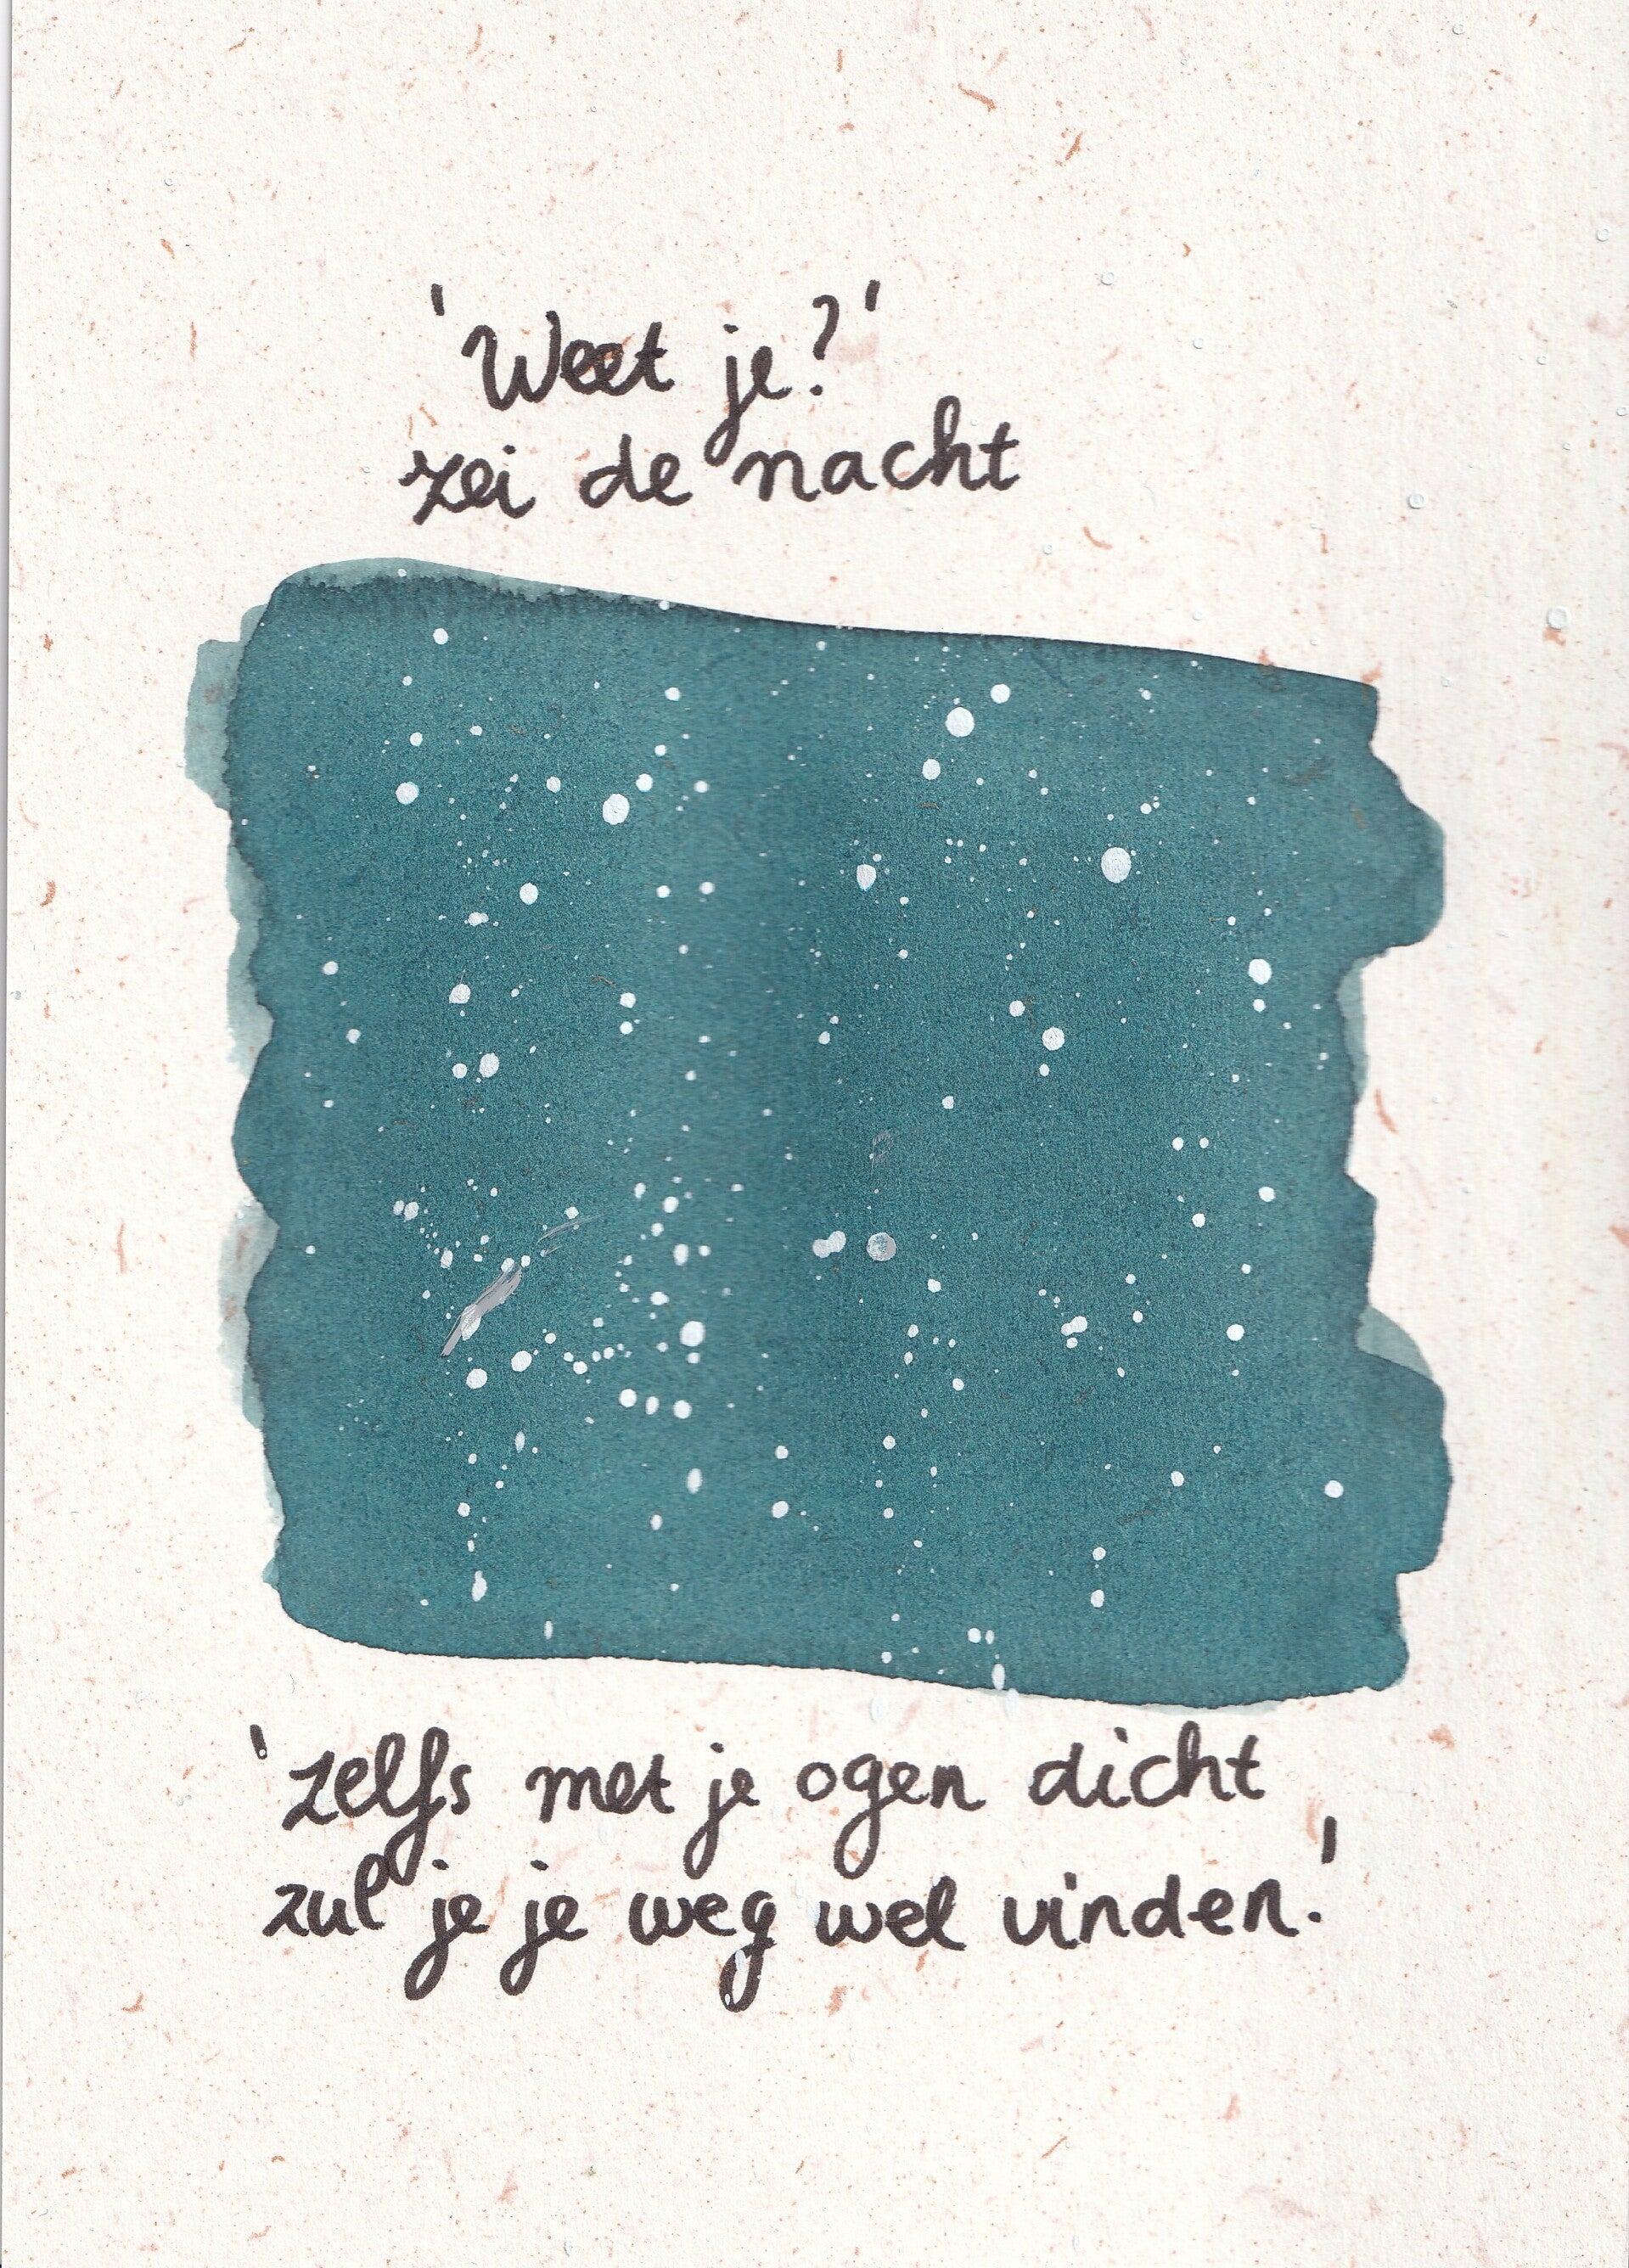 'Weet je?'
zei de nacht
'zelfs met je ogen dicht
zul je je weg wel vinden.'